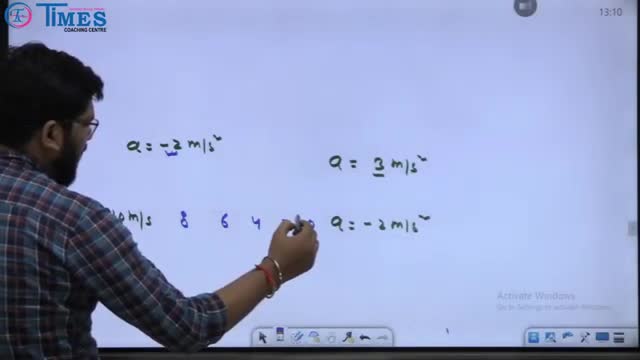 TIMES
COACHING CENTRE
13:10
a = -2 m/s²
a = 3 m/s²
m/s 8 6 4
a = -2 m/s²
Activate Windows
Go to Settings to activate Windows.